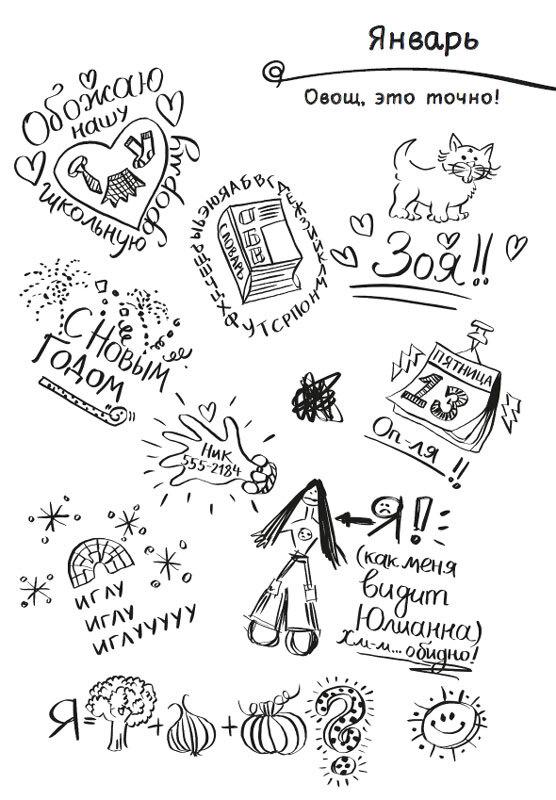 Январь
Овощ, это точно!
Обожаю
нашу
школьную форму
АБВГДЕЖЗИЙКЛМНОПРСТУФХ
СЛОВАРЬ
А
Б
В
Зоя!!
С Новым
Годом
ПЯТНИЦА
13
Оп-ля!!
Ник
555-2184
Я!!
(как меня
видит
Юлианна)
Хм-м... обидно!
иглу
иглу
иглууууу
Я=
+
+
?